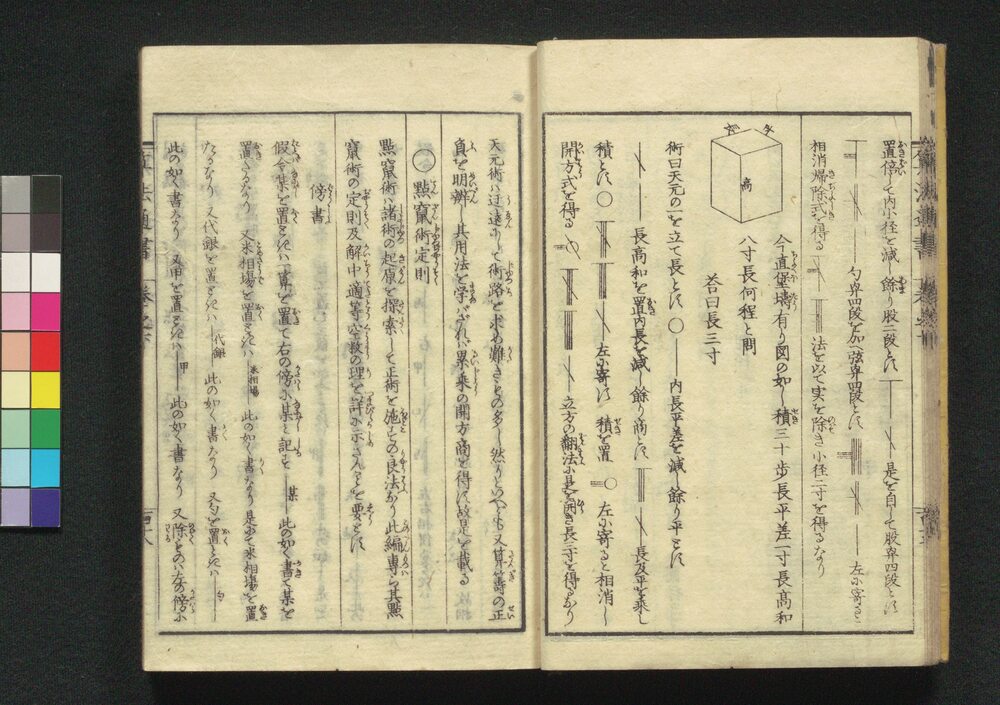 置倍して内小径を減し餘り股二段とす 是を自して股冪四段とす
勾冪四段を加へ弦冪四段とす 左に寄ると
相消帰除式を得る 法を以て実を除き小径二寸を得るなり
今直堡壔有り図の如し積三十歩長平差一寸長高和
八寸長何程と問
答曰長三寸
高
術曰天元の一を立て長とす〇 内長平差を減し餘り平とす
長高和を置内長を減し餘り高とす 長及平を乗し
積とす〇 左に寄す 積を置 〇 左に寄ると相消し
開方式を得る 立方の翻法に是を開き長三寸を得るなり
天元術ハ迂遠にして術路を求め難きもの多し然りといへども又算籌の正
負を明辨し其用法を学バざれバ累乗の開方商を得ず故是を載る
〇點竄術定則
點竄術ハ諸術の起原を探索して正術を施すの良法なり此編専ら其點
竄術の定則及解中適等空数の理を詳に示さんことを要とす
傍書
假令某を置ときハ一算を置て右の傍に某と記す 某 此の如く書て某を
置たるなり 又米相場を置ときハ 米相場 此の如く書なり是にて米相場を置
たるなり 又代銀を置ときハ 代銀 此の如く書なり 又勾を置ときハ 勾
此の如く書なり 又甲を置ときハ 甲 此の如く書なり 又除ものハ左の傍に